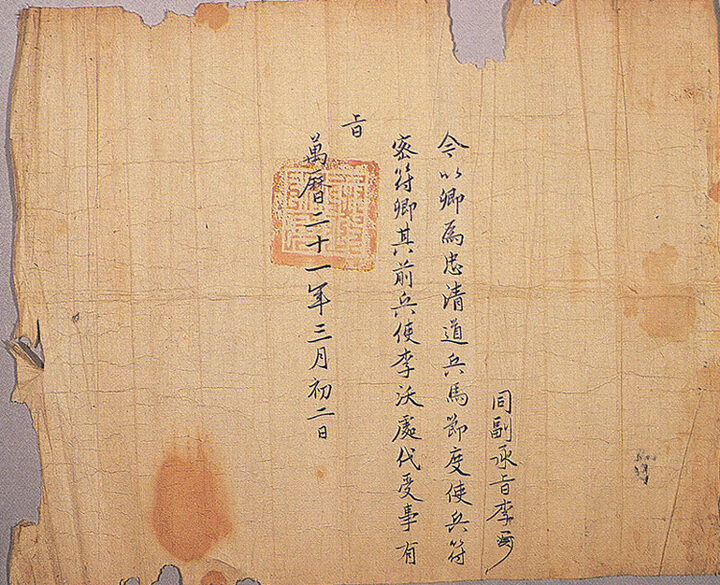 同副承旨李
今以卿爲忠清道兵馬節度使兵符
密符卿其前兵使李沃處代受事有
旨
萬曆二十一年三月初二日